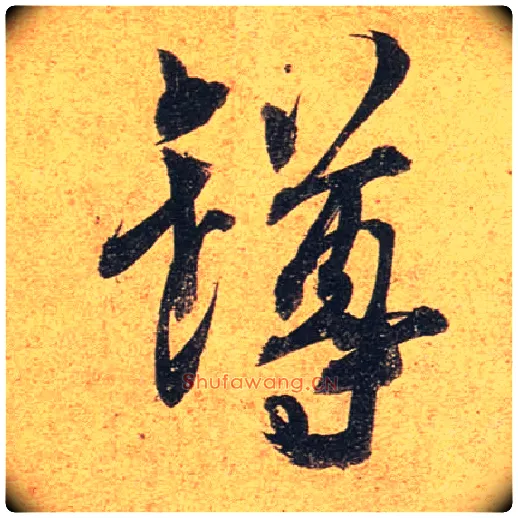 罇
Shufawang.CN